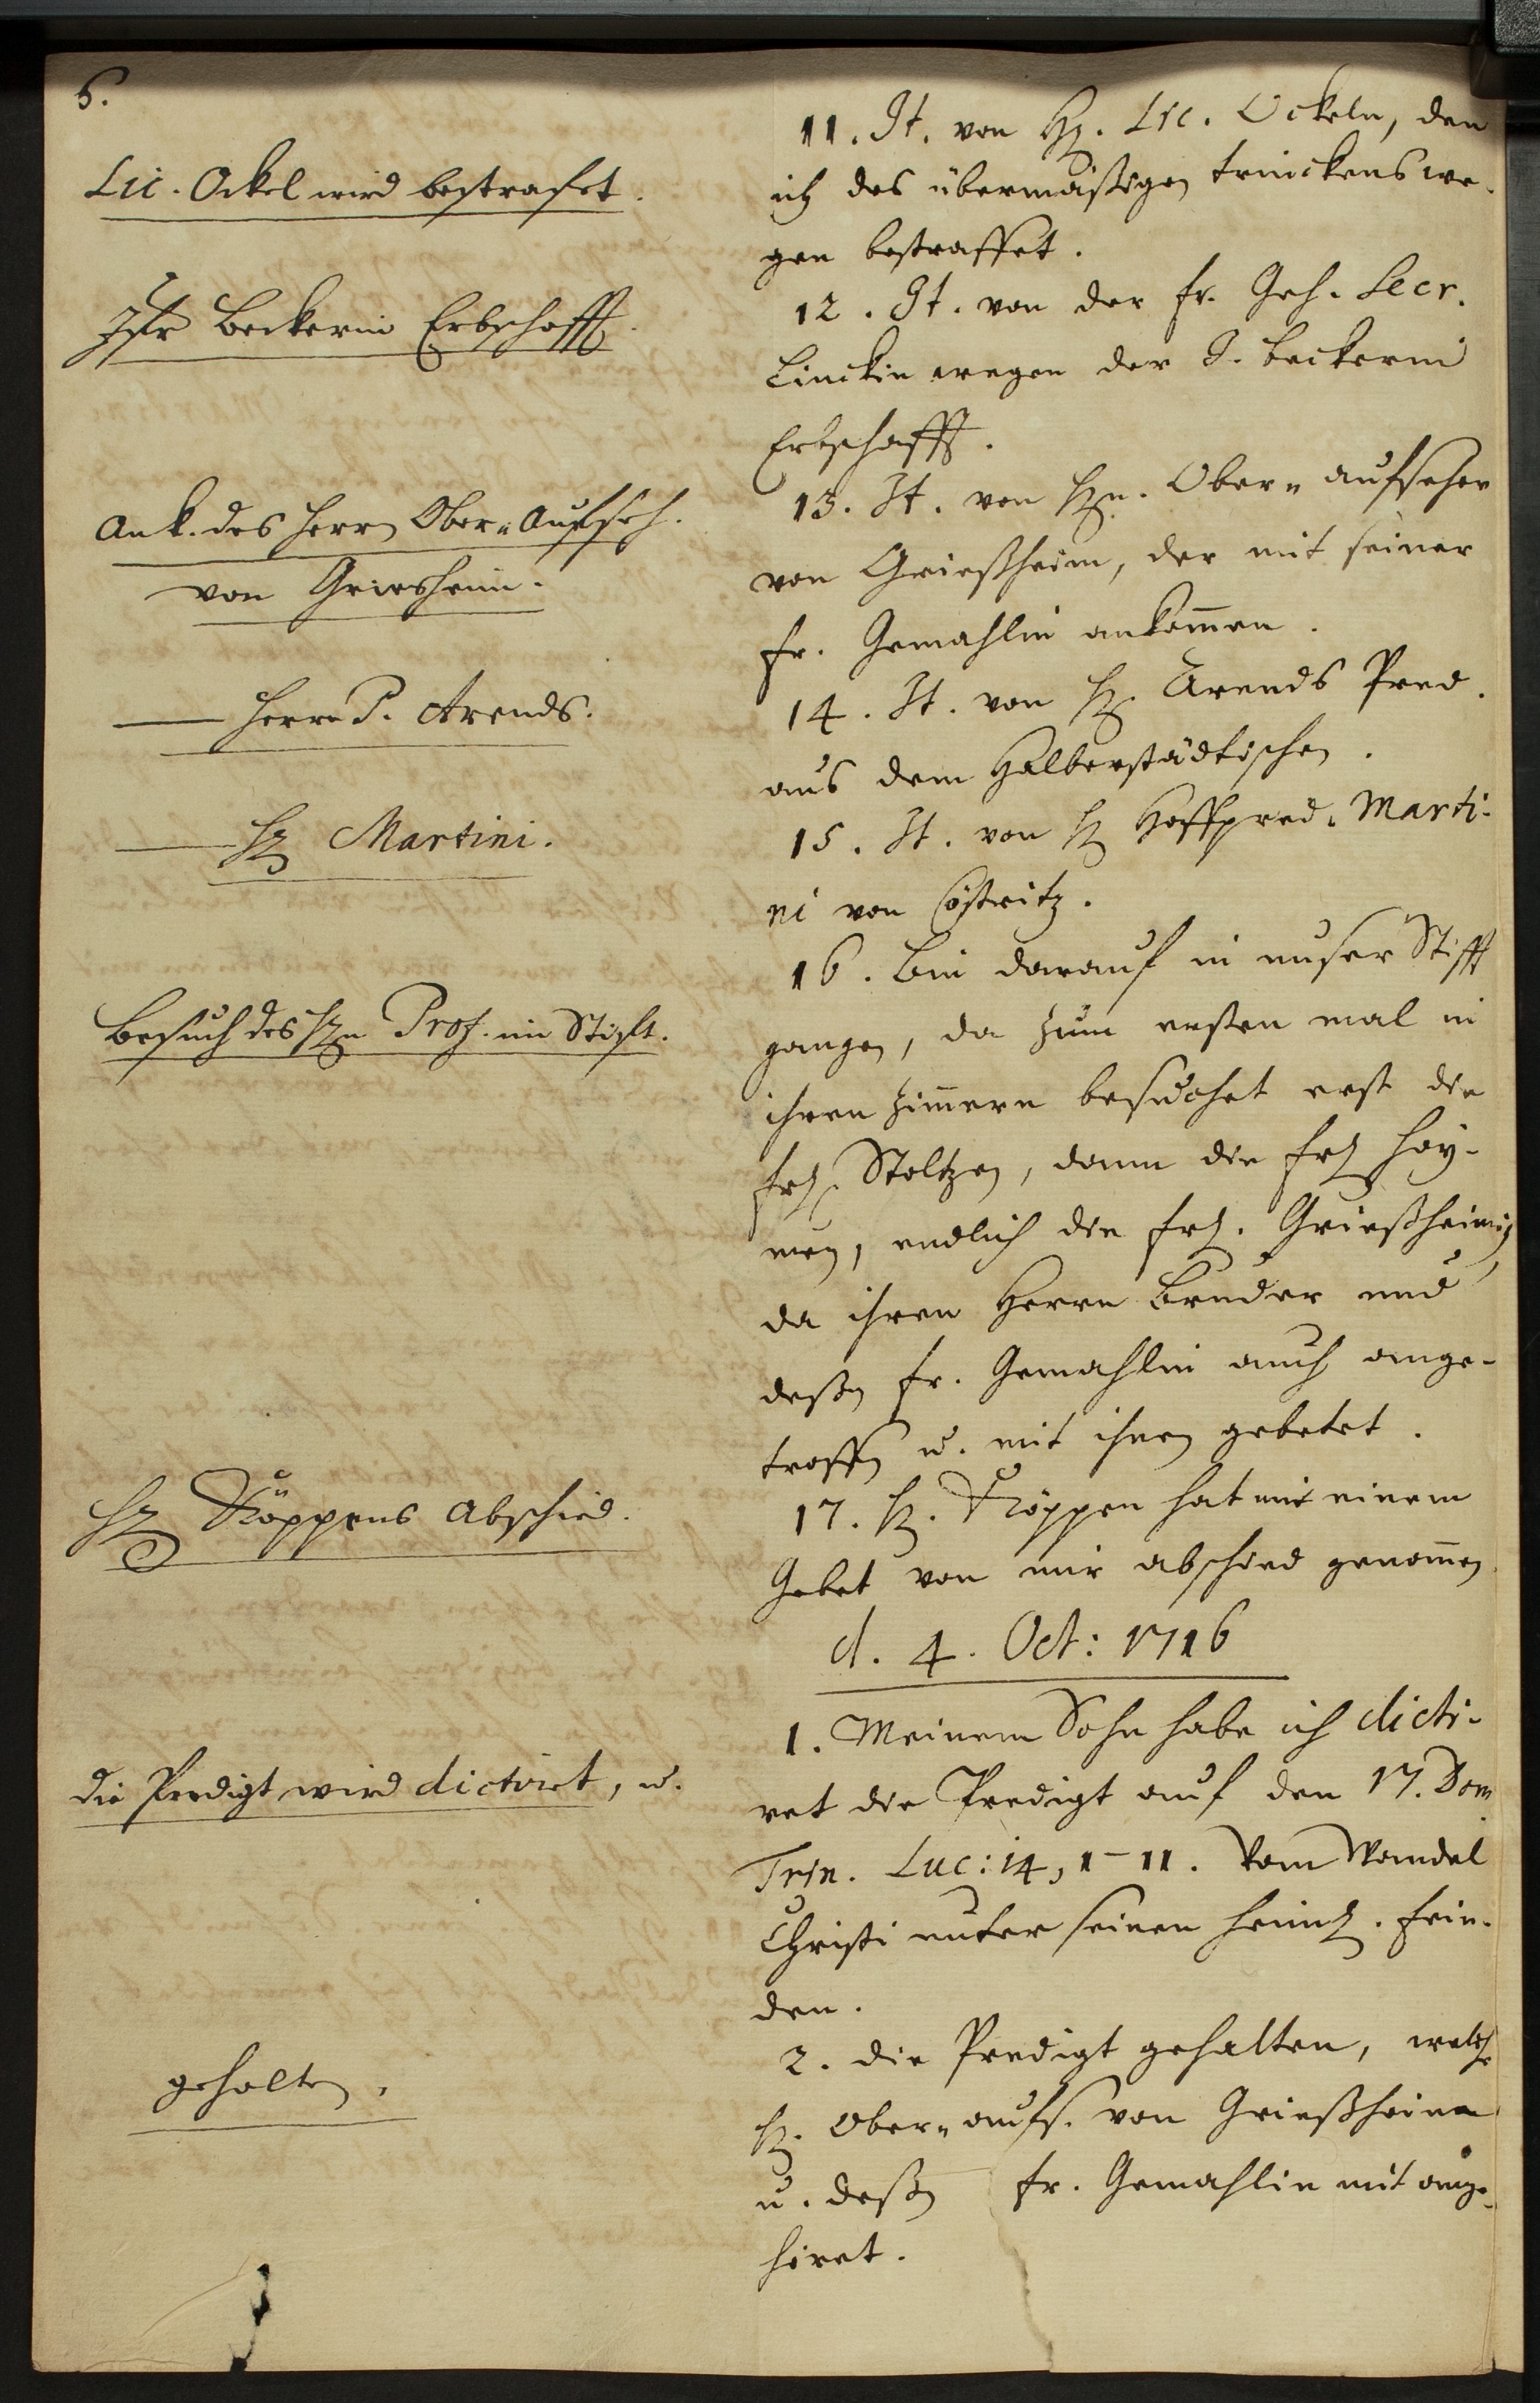 6.
Lic. Ockel wird bestrafet.
Jfr Beckerin Erbschafft.
Ank. des Herrn Ober-Aufseh.
von Griesheim.
—— Herrn P. Arends.
—— H. Martini.
Besuch des Hn Prof. im Stift.
H. Köppens Abschied.
Die Predigt wird dictiret, u.
gehalten.
11. It. von H. Lic. Ockeln, den
ich des übermäßigen trinckens we-
gen bestraffet.
12. It. von der Fr. Geh. Secr.
Linckin wegen der J. Beckerin
Erbschafft.
13. It. von Hn. Ober-aufseher
von Grießheim, der mit seiner
Fr. Gemahlin ankom̄en.
14. It. von H. Arends Pred.
aus dem Halberstädtischen.
15. It. von H. Hoffpred. Marti-
ni von Cöstritz.
16. Bin darauf in unser Stifft
gangen, da zum ersten mal in
ihren Zim̄ern besuchet erst die
Frl. Stoltzen, dann die Frl. Hoy-
men, endlich die Frl. Grießheimin,
da ihren Herrn Bruder und
deßen Fr. Gemahlin auch ange-
troffen u. mit ihnen gebetet.
17. H. Köppen hat mit einem
Gebet von mir abschied genom̄en
d. 4. Oct: 1716
1. Meinem Sohn habe ich dicti-
ret die Predigt auf den 17. Dom.
Trin. Luc: 14, 1-11. Vom Wandel
Christi unter seinen heiml. Fein-
den.
2. die Predigt gehalten, welche
H. Ober-aufs. von Grießheim
u. deßen Fr. Gemahlin mit ange-
höret.